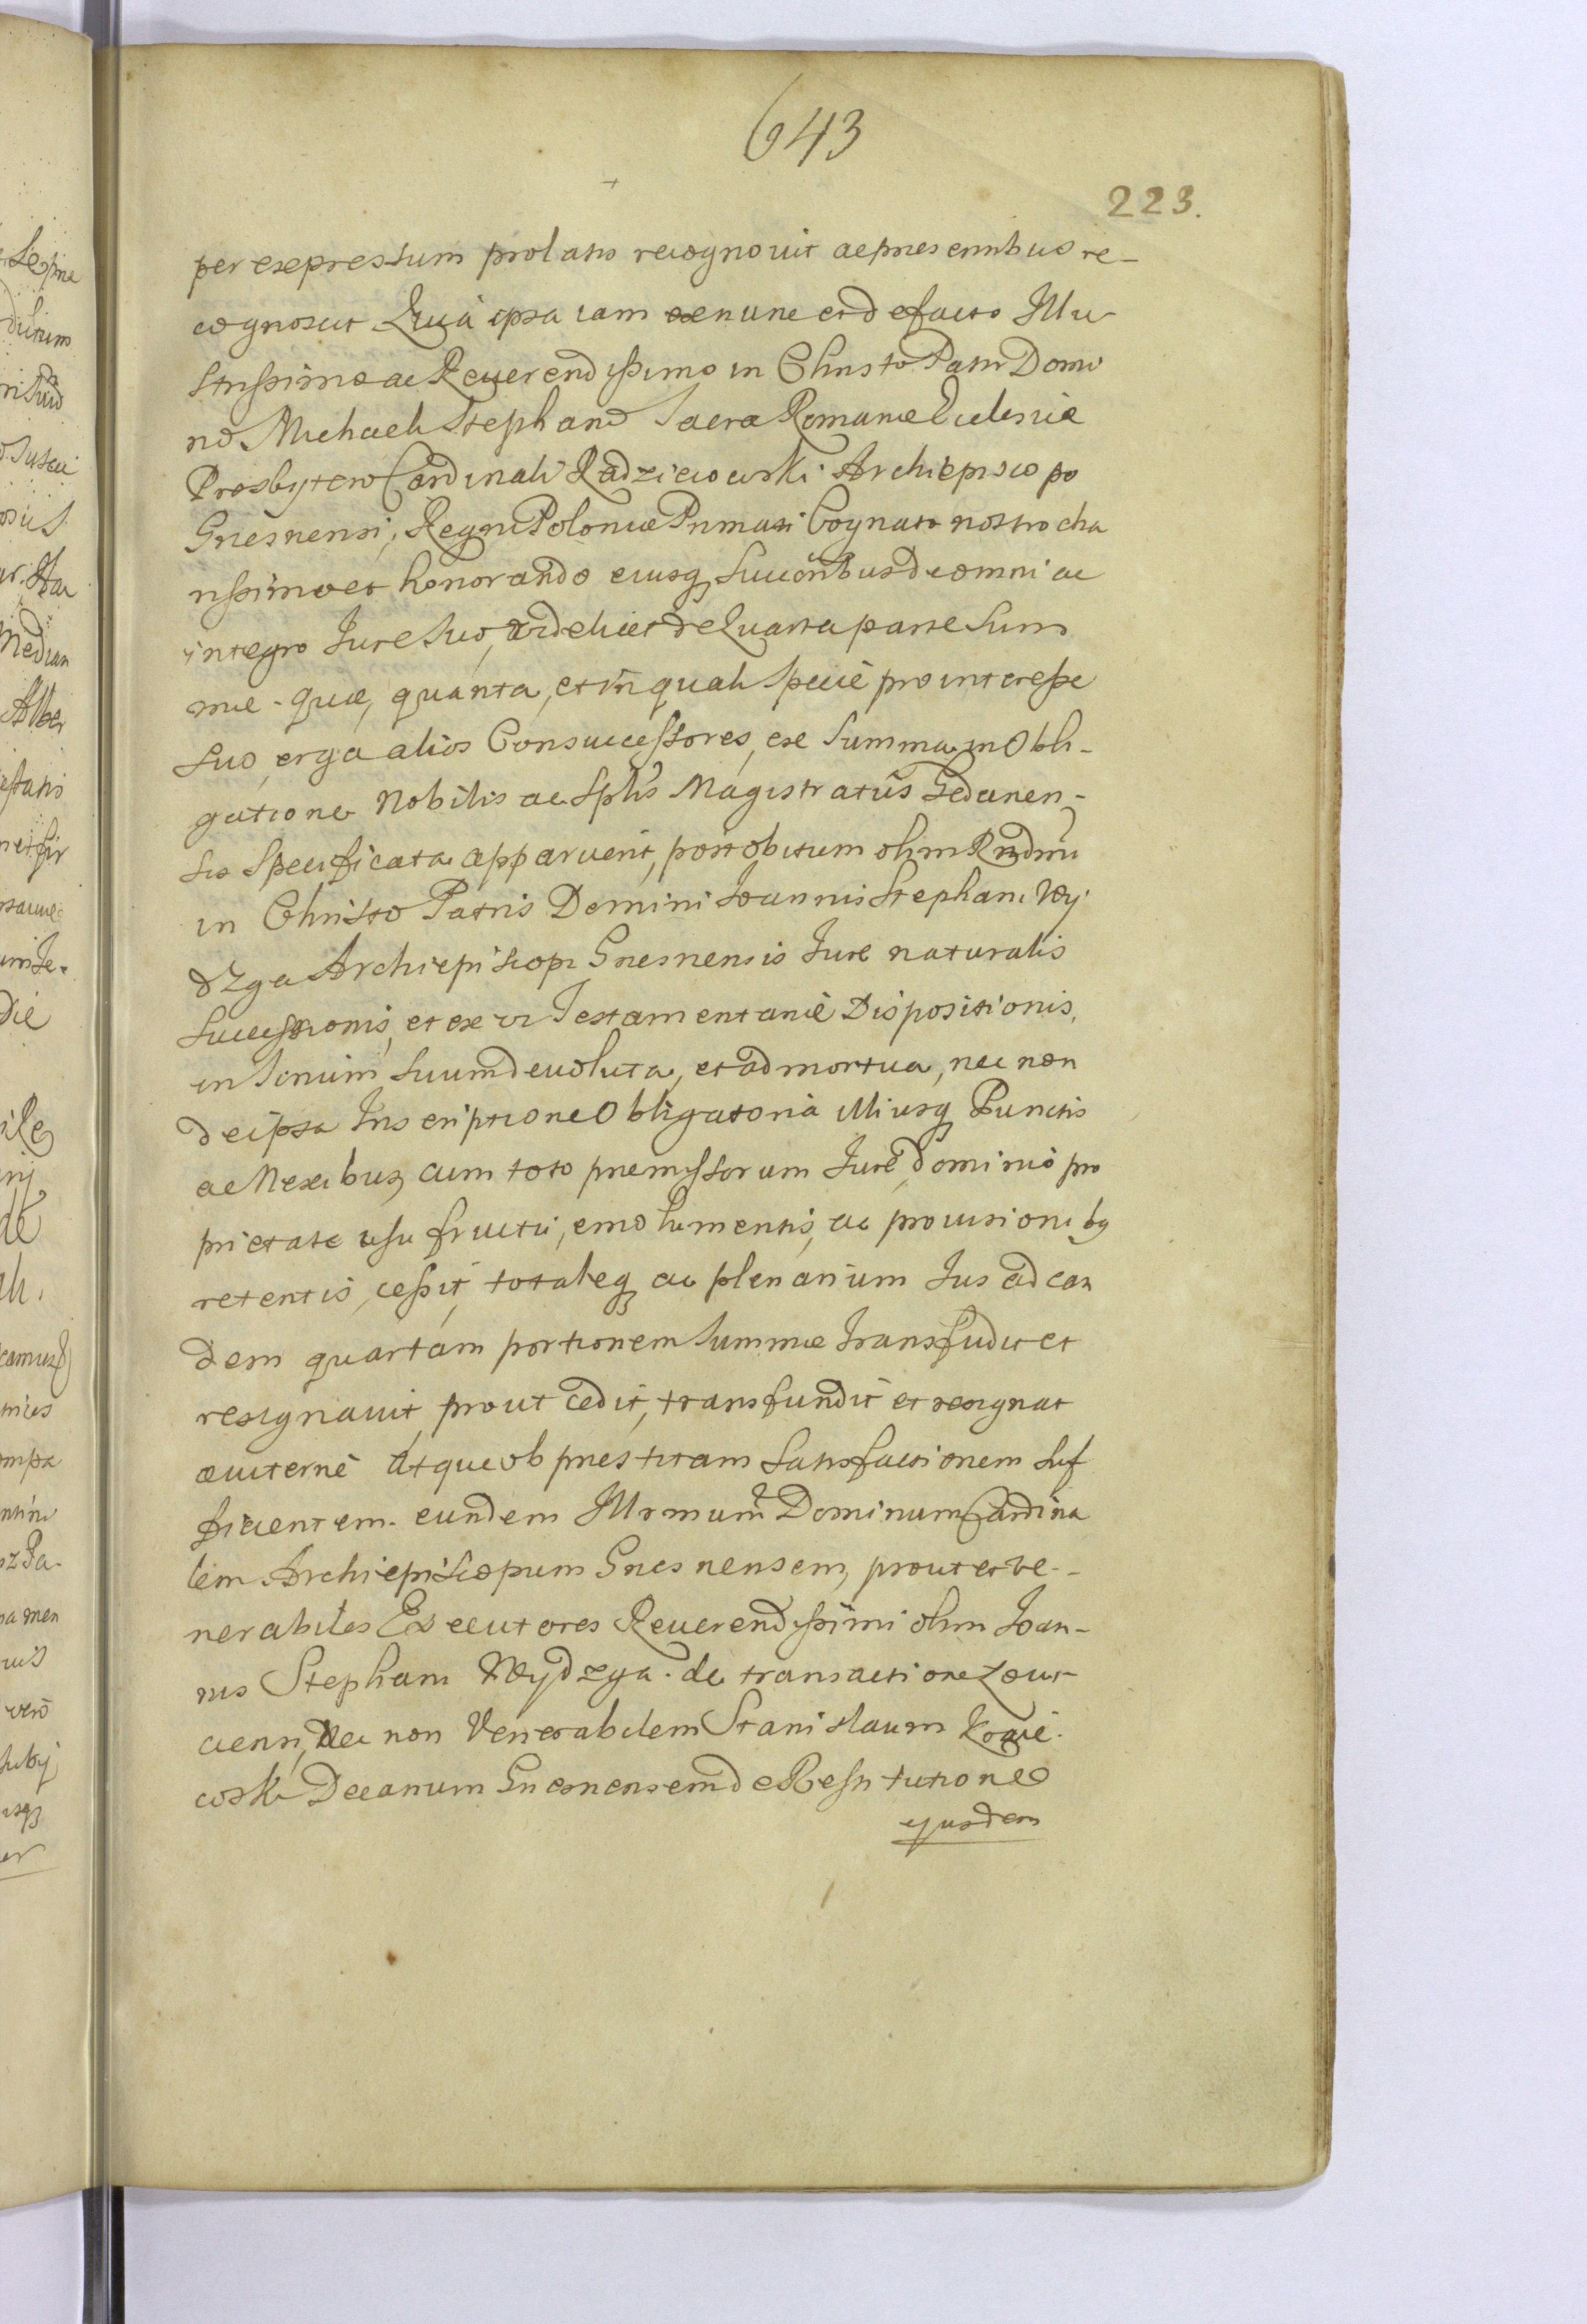 643
223.
per expressum prolatis recognovit ac præsentibus re-
cognoscit Quia ipsa iam ex nunc et de facto Illu-
strissimo ac Reuerendissimo in Christo Patri Domi
no Michaeli Stephano Sacræ Romanæ Ecclesiæ
Presbytero Cardinali Radzieiowski Archiepiscopo
Gnesnensi, Regni Poloniæ Primati Cognato nostro cha
rissimo et honorando eiusq Succōribus de omni ac
integro Jure Suo, videlicet de Quarta parte Sum
mæ. quæ, quanta, et in quali Specie pro interesse
Suo, erga alios Consuccessores, ex Summa in Obli-
gatione Nobilis ac Splis Magistratus Gedanen-
sis Specificata apparuerit, post obitum olim Rndmi
in Christo Patris Domini Joannis Stephani Wy
dzga Archiepiscopi Gnesnensis Jure naturalis
Successionis, et ex vi Testamentariæ Dispositionis,
in Sinum Suum deuoluta, et admortua, nec non
de ipsa Inscriptione Obligatoria illiusq Punctis
ac Nexibus, cum toto præmissorum Jure, dominio pro
prietate usu fructu, emolumentis, ac prouisionibg
retentis, cessit, totaleq ac plenarium Jus ad ean
dem quartam portionem Summæ transfudit et
resignauit, prout cedit, transfundit et resignat
æuiternè Atque ob præstitam Satisfactionem Suf
ficientem. eundem Illrmum Dominum Cardina
lem Archiepiscopum Gnesnensem, prout et ve-
nerabiles Executores Reuerendissimi olim Joan-
nis Stephani Wydzga. de transactione Loui-
ciensi, Nec non Venerabilem Stanislaum
Decanum Gnesnensem de Restitutione
ejusdem